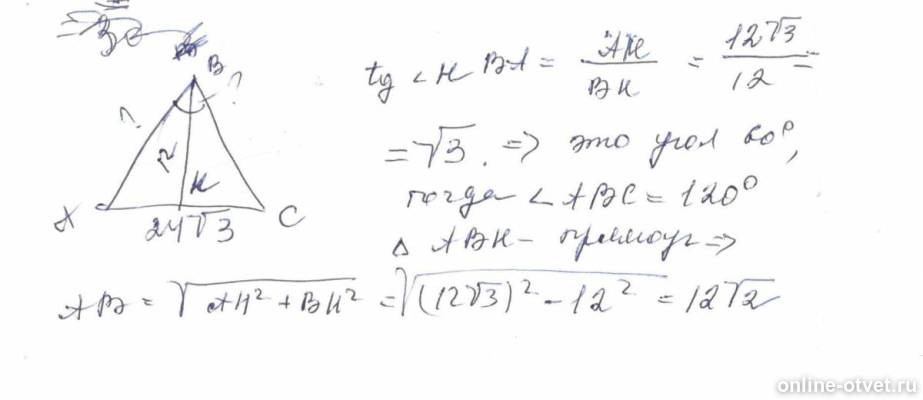 B
? ?
12
H
A C
24√3
tg ∠HBA = AH/BH = 12√3/12 =
= √3. => это угол 60°,
тогда ∠ABC = 120°
Δ ABH - прямоуг =>
AB = √(AH² + BH²) = √((12√3)² - 12²) = 12√2
online-otvet.ru